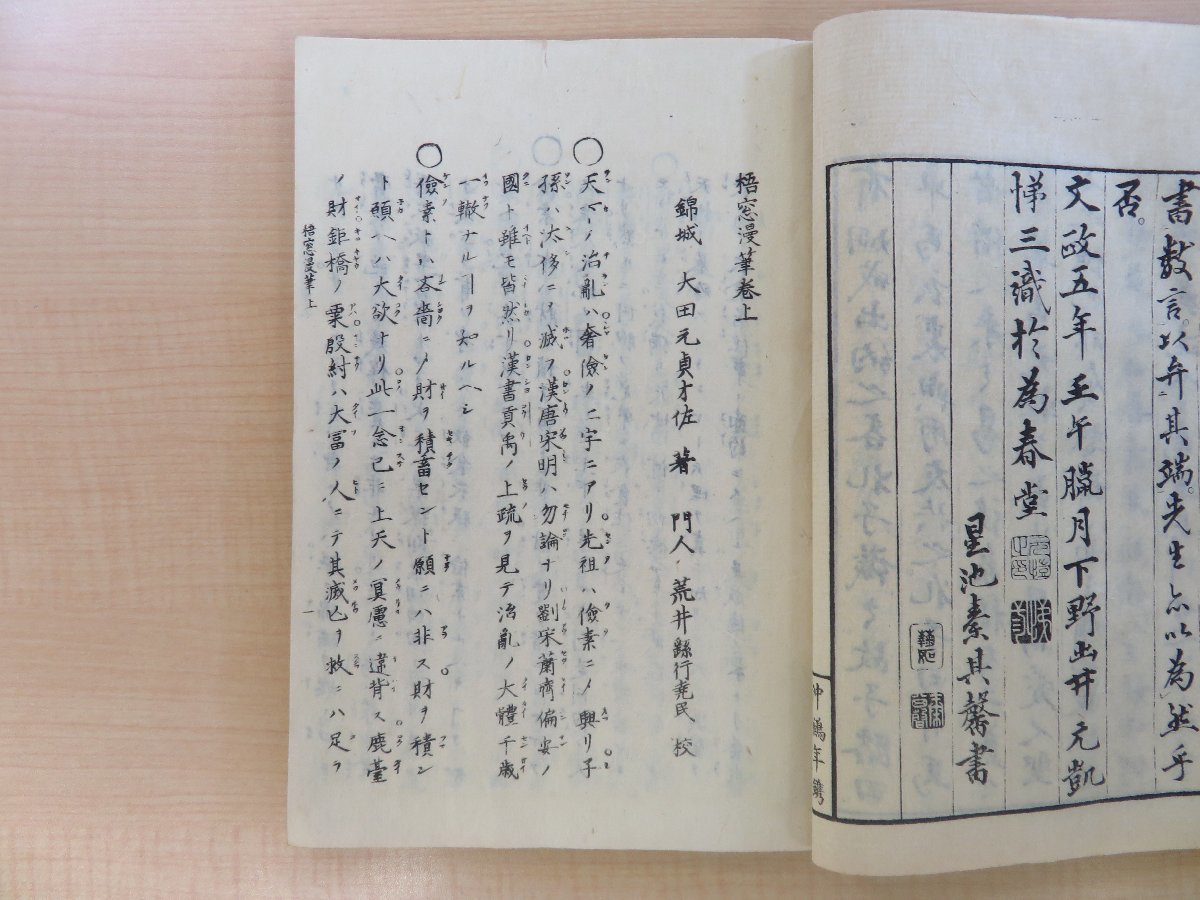 書数言以弁其端先生亦以為然乎
否。
文政五年壬午臘月下野山井元凱
悌三識於為春堂
星池秦其馨書
仲鶴年鐫
梧窓漫筆巻上
錦城 大田元貞才佐 著 門人 荒井繇行堯民 校
〇天下ノ治亂ハ奢儉ノ二字ニアリ。先祖ハ儉素ニメ興リ。子
孫ハ汰侈ニメ滅フ。漢唐宋明ハ勿論ナリ劉宋蕭齊偏安ノ
國ト雖モ皆然リ。漢書貢禹ノ上疏ヲ見テ治亂ノ大體千歳
一轍ナルヿヲ知ルヘシ
〇儉素トハ吝嗇ニメ財ヲ積畜セント願ニハ非ス。財ヲ積ン
ト願ハハ大欲ナリ。此一念已ニ上天ノ冥慮ニ違背ス。鹿臺
ノ財鉅橋ノ粟。殷紂ハ大冨ノ人ニテ其滅亡ヲ救ニハ足ラ
梧窓漫筆上
一